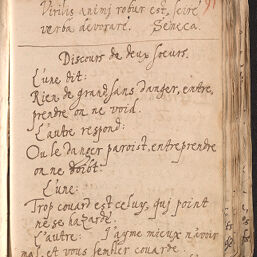 Virilis animi robur est, scire
verba devorare. Seneca.
Discours de deux soeurs.
L'une dit:
Rien de grand sans danger, entre,
prendre on ne void.
L'autre respond:
Ou le danger paroist, entreprendre
on ne doibt.
L'une:
Trop couard est celuy, qui point
ne se hazarde.
L'autre: J'ayme mieux n'avoir
mal, et vous sembler couarde